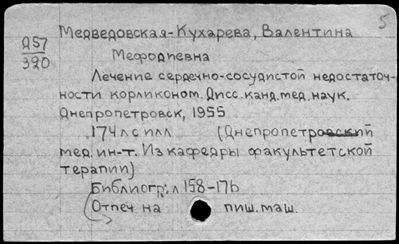 5
Медведовская-Кухарева, Валентина
Д57
320
Мефодиевна
Лечение сердечно-сосудистой недостаточ-
ности корликоном. Дисс. канд. мед. наук.
Днепропетровск, 1955
174 л с илл (Днепропетровский
мед. ин-т. Из кафедры факультетской
терапии)
Библиогр: л 158-176
(Отпеч на пиш. маш.